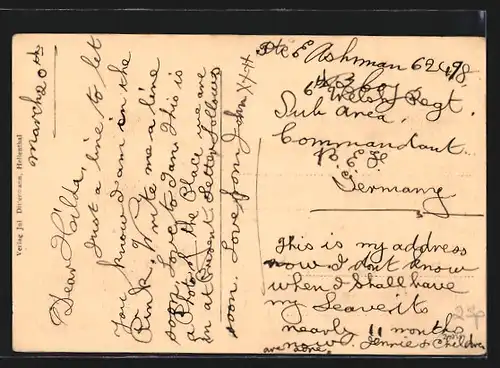 Verlag Jul. Dittermann, Hellenthal
March 20th
Dear Hilda,
Just a line to let
you know I am in the
Pink. Write me a line
soon. Love to Dan. This is
a Photo of the Place we are
in at Present. Letter follows
soon. Love from Jim XXX
Pte E Ashman 62498
6th Welsh Regt.
Sub Area,
Commandant
B.E.F.
Germany
This is my address
now I dont know
when I shall have
my Leave its
nearly 11 months
now. Jennie & Children
are